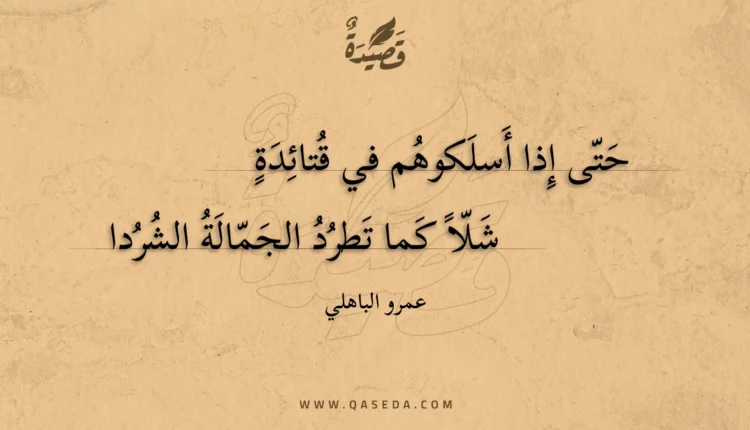 قَصِيدَةٌ
حَتّى إِذا أَسلَكوهُم في قُتائِدَةٍ
شَلّاً كَما تَطرُدُ الجَمّالَةُ الشُرُدا
عمرو الباهلي
WWW.QASEDA.COM